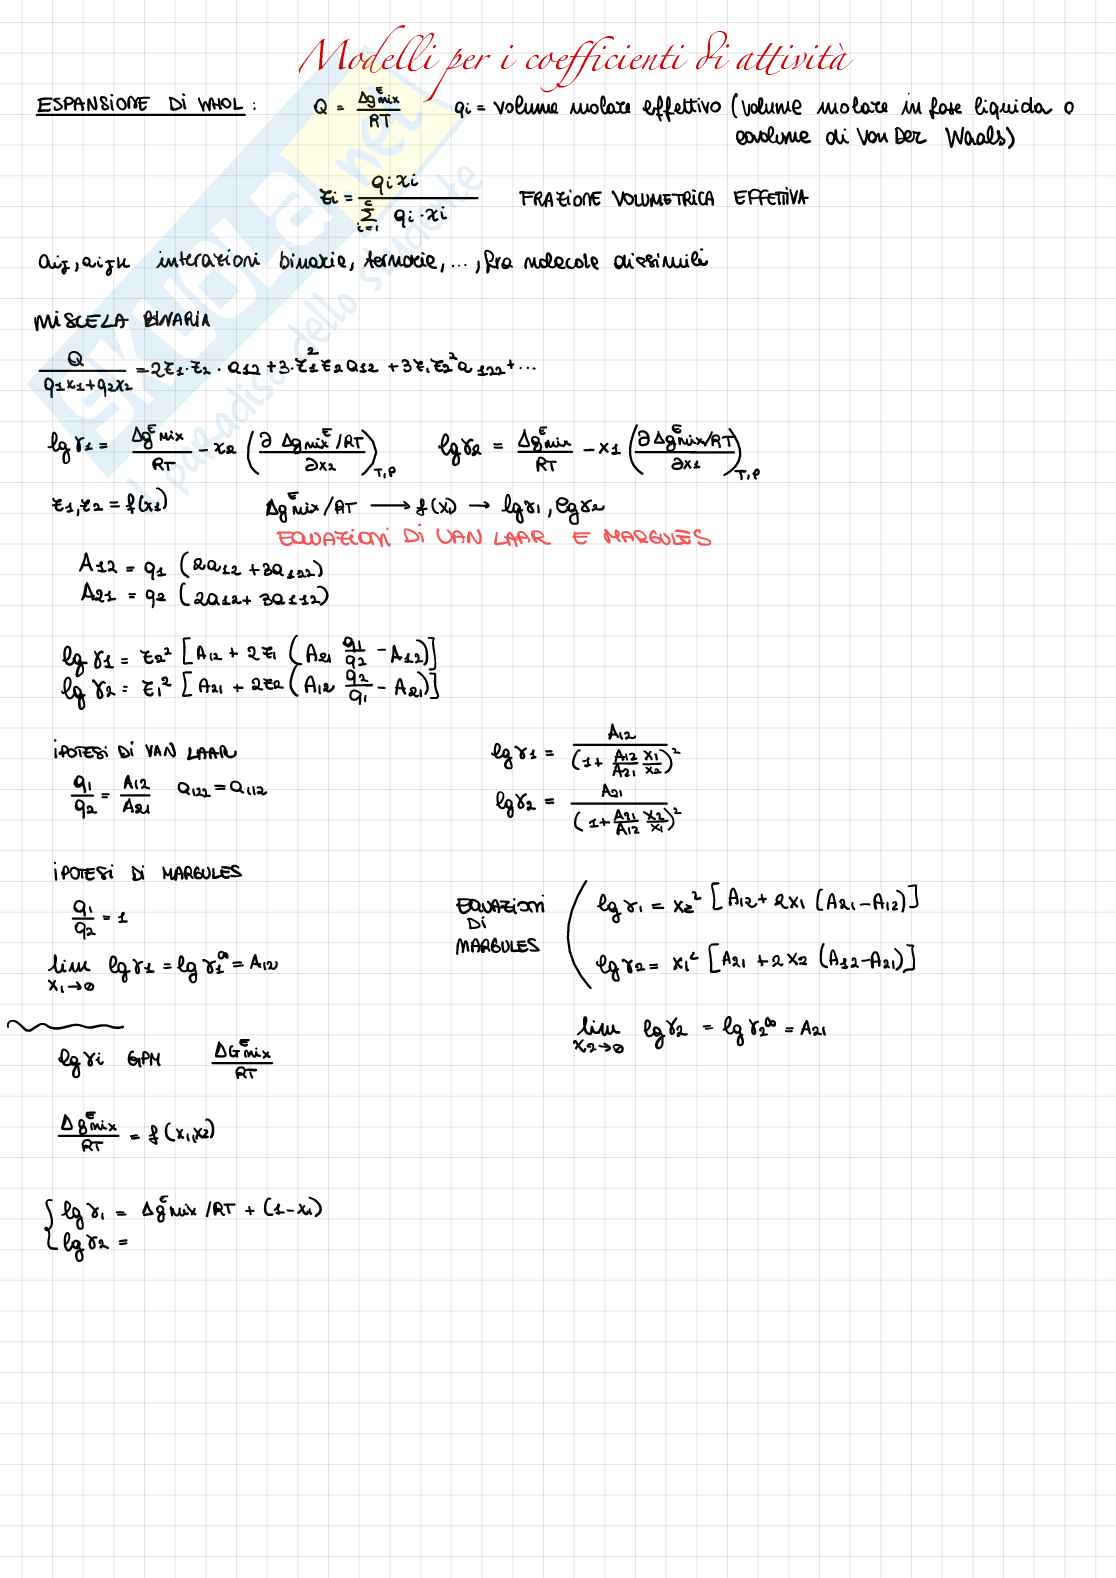 Modelli per i coefficienti di attività
ESPANSIONE DI WHOL: Q = Δg^E mix / RT qi = volume molare effettivo (volume molare in fase liquida o
covolume di Van Der Waals)
zi = qi xi / Σ_{i=1}^{c} qi·xi FRAZIONE VOLUMETRICA EFFETTIVA
aij, aijk interazioni binarie, ternarie, ..., fra molecole dissimili
MISCELA BINARIA
Q / (q1x1+q2x2) = 2z1·z2·a12 + 3·z1²z2 a12 + 3z1z2² a122 + ...
lg γ1 = Δg^E mix / RT - x2 (∂ Δg^E mix/RT / ∂x2)T,P lg γ2 = Δg^E mix / RT - x1 (∂ Δg^E mix/RT / ∂x1)T,P
z1, z2 = f(x1) Δg^E mix/RT → f(x) → lgγ1, lgγ2
EQUAZIONI DI VAN LAAR E MARGULES
A12 = q1 (2a12 + 3a122)
A21 = q2 (2a12 + 3a112)
lg γ1 = z2² [A12 + 2z1 (A21 q1/q2 - A12)]
lg γ2 = z1² [A21 + 2z2 (A12 q2/q1 - A21)]
IPOTESI DI VAN LAAR
q1/q2 = A12/A21 a122 = a112
lg γ1 = A12 / (1 + A12/A21 x1/x2)²
lg γ2 = A21 / (1 + A21/A12 x2/x1)²
IPOTESI DI MARGULES
q1/q2 = 1
lim x1→0 lg γ1 = lg γ1^∞ = A12
EQUAZIONI
DI
MARGULES
lg γ1 = x2² [A12 + 2x1 (A21 - A12)]
lg γ2 = x1² [A21 + 2x2 (A12 - A21)]
lim x2→0 lg γ2 = lg γ2^∞ = A21
lg γi GPM ΔG^E mix / RT
Δg^E mix / RT = f(x1,x2)
{ lg γ1 = Δg^E mix /RT + (1-x1)
lg γ2 =
SKUOLA.net
il paradiso dello studente